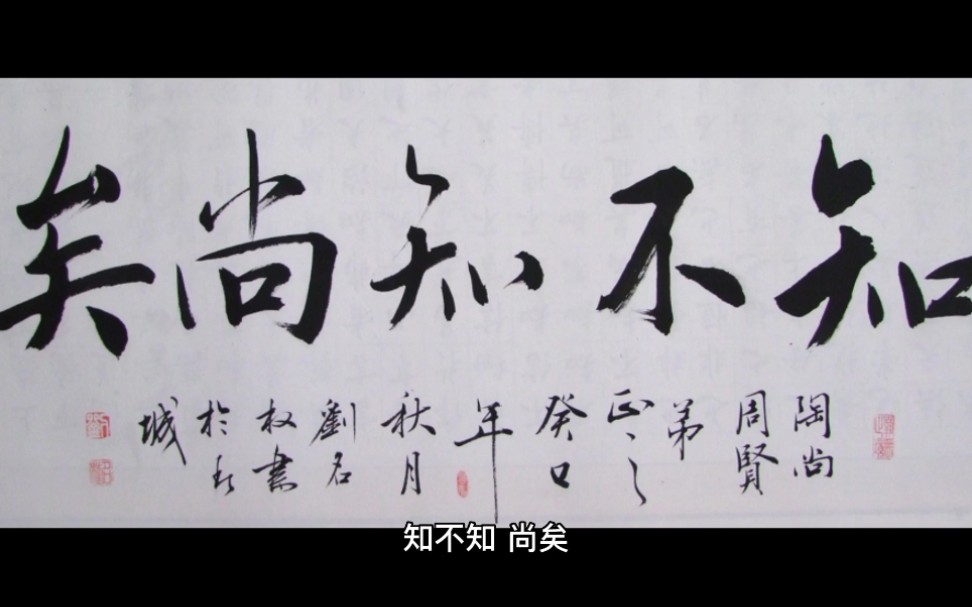 知不知尚矣
陶尚
周賢
弟
正之
癸
年
秋月
劉名
权書
於
城
知不知 尚矣